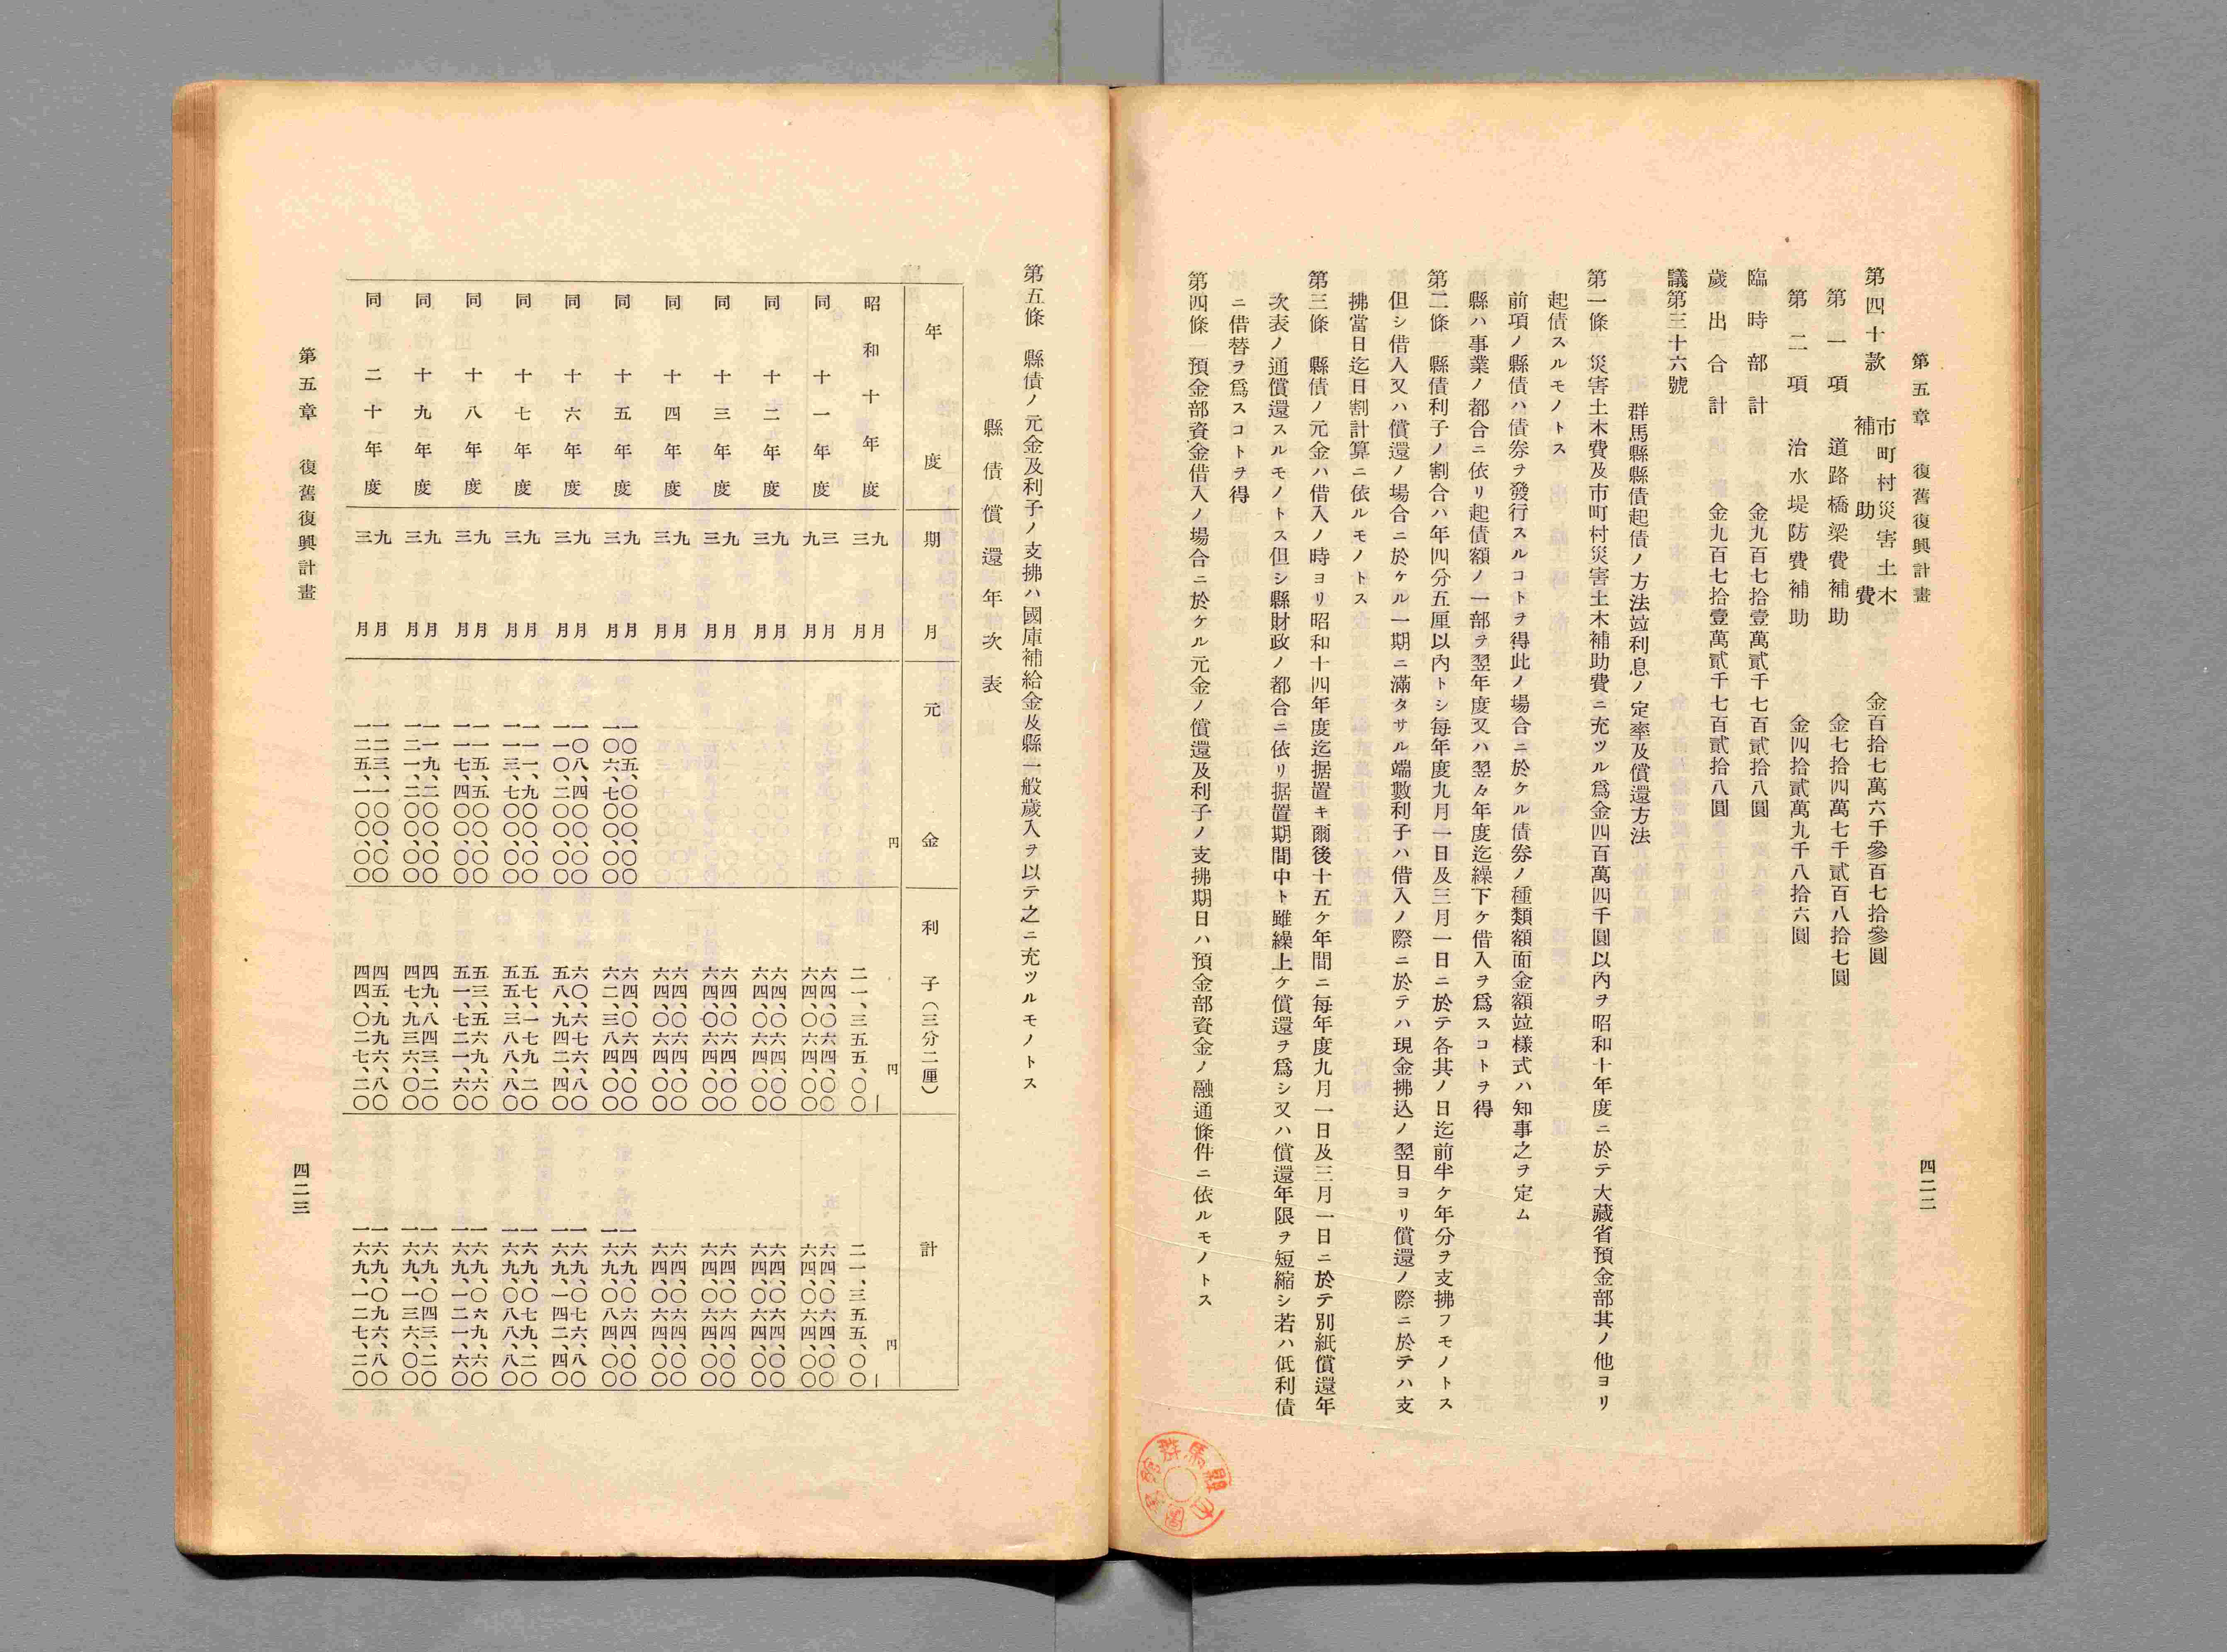 第五章　復舊復興計畫
四二二
第四十款　市町村災害土木補助費　金百拾七萬六千參百七拾參圓
第一項　道路橋梁費補助　金七拾四萬七千貳百八拾七圓
第二項　治水堤防費補助　金四拾貳萬九千八拾六圓
臨時部計　金九百七拾壹萬貳千七百貳拾八圓
歲出合計　金九百七拾壹萬貳千七百貳拾八圓
議第三十六號
群馬縣縣債起債ノ方法竝利息ノ定率及償還方法
第一條　災害土木費及市町村災害土木補助費ニ充ツル爲金四百萬四千圓以內ヲ昭和十年度ニ於テ大藏省預金部其ノ他ヨリ
起債スルモノトス
前項ノ縣債ハ債券ヲ發行スルコトヲ得此ノ場合ニ於ケル債券ノ種類額面金額竝樣式ハ知事之ヲ定ム
縣ハ事業ノ都合ニ依リ起債額ノ一部ヲ翌年度又ハ翌々年度迄繰下ケ借入ヲ爲スコトヲ得
第二條　縣債利子ノ割合ハ年四分五厘以內トシ每年度九月一日及三月一日ニ於テ各其ノ日迄前半ケ年分ヲ支拂フモノトス
但シ借入又ハ償還ノ場合ニ於ケル一期ニ滿タサル端數利子ハ借入ノ際ニ於テハ現金拂込ノ翌日ヨリ償還ノ際ニ於テハ支
拂當日迄日割計算ニ依ルモノトス
第三條　縣債ノ元金ハ借入ノ時ヨリ昭和十四年度迄据置キ爾後十五ケ年間ニ每年度九月一日及三月一日ニ於テ別紙償還年
次表ノ通償還スルモノトス但シ縣財政ノ都合ニ依リ据置期間中ト雖繰上ケ償還ヲ爲シ又ハ償還年限ヲ短縮シ若ハ低利債
ニ借替ヲ爲スコトヲ得
第四條　預金部資金借入ノ場合ニ於ケル元金ノ償還及利子ノ支拂期日ハ預金部資金ノ融通條件ニ依ルモノトス
第五條　縣債ノ元金及利子ノ支拂ハ國庫補給金及縣一般歲入ヲ以テ之ニ充ツルモノトス
縣債償還年次表
年度　期月　元金　利子（三分二厘）　計
円　円　円
昭和十年度　九月　｜　｜
三月　二一、三五五、〇〇　二一、三五五、〇〇
同十一年度　三月　六四、〇六四、〇〇　六四、〇六四、〇〇
九月　六四、〇六四、〇〇　六四、〇六四、〇〇
同十二年度　九月　六四、〇六四、〇〇　六四、〇六四、〇〇
三月　六四、〇六四、〇〇　六四、〇六四、〇〇
同十三年度　九月　六四、〇六四、〇〇　六四、〇六四、〇〇
三月　六四、〇六四、〇〇　六四、〇六四、〇〇
同十四年度　九月　六四、〇六四、〇〇　六四、〇六四、〇〇
三月　六四、〇六四、〇〇　六四、〇六四、〇〇
同十五年度　九月　一〇五、〇〇〇、〇〇　六四、〇六四、〇〇　一六九、〇六四、〇〇
三月　一〇六、七〇〇、〇〇　六二、三八四、〇〇　一六九、〇八四、〇〇
同十六年度　九月　一〇八、四〇〇、〇〇　六〇、六七六、八〇　一六九、〇七六、八〇
三月　一一〇、二〇〇、〇〇　五八、九四二、四〇　一六九、一四二、四〇
同十七年度　九月　一一一、九〇〇、〇〇　五七、一七九、二〇　一六九、〇七九、二〇
三月　一一三、七〇〇、〇〇　五五、三八八、八〇　一六九、〇八八、八〇
同十八年度　九月　一一五、五〇〇、〇〇　五三、五六九、六〇　一六九、〇六九、六〇
三月　一一七、四〇〇、〇〇　五一、七二一、六〇　一六九、一二一、六〇
同十九年度　九月　一一九、二〇〇、〇〇　四九、八四三、二〇　一六九、〇四三、二〇
三月　一二一、二〇〇、〇〇　四七、九三六、〇〇　一六九、一三六、〇〇
同二十年度　九月　一二三、一〇〇、〇〇　四五、九九六、八〇　一六九、〇九六、八〇
三月　一二五、一〇〇、〇〇　四四、〇二七、二〇　一六九、一二七、二〇
第五章　復舊復興計畫
四二三